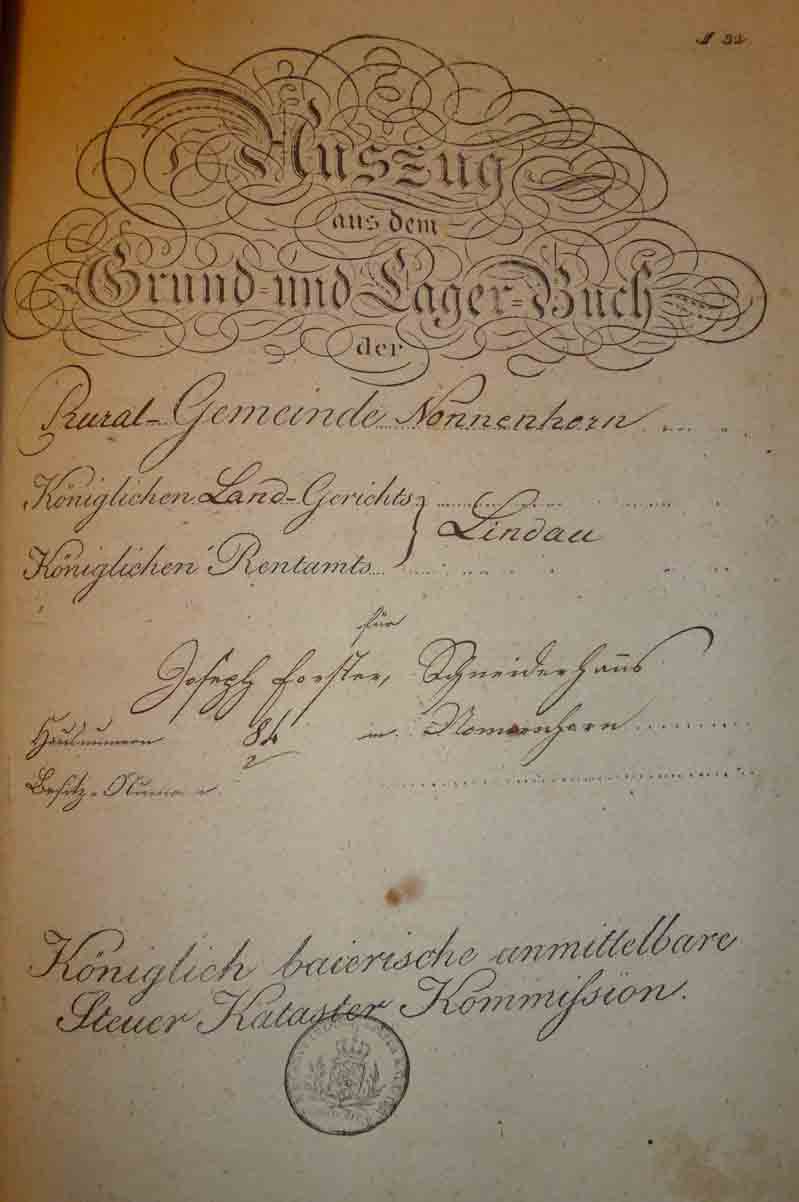 Auszug
aus dem
Grund- und Lager-Buch
der
Rural-Gemeinde Nonnenhorn
Königlichen Land-Gerichts } Lindau
Königlichen Rentamts
für
Joseph Forster, Schneiderhanns
Hausnummern 84 in Nonnenhorn
Besitz-Numer
Königlich baierische unmittelbare
Steuer Kataster Kommission.